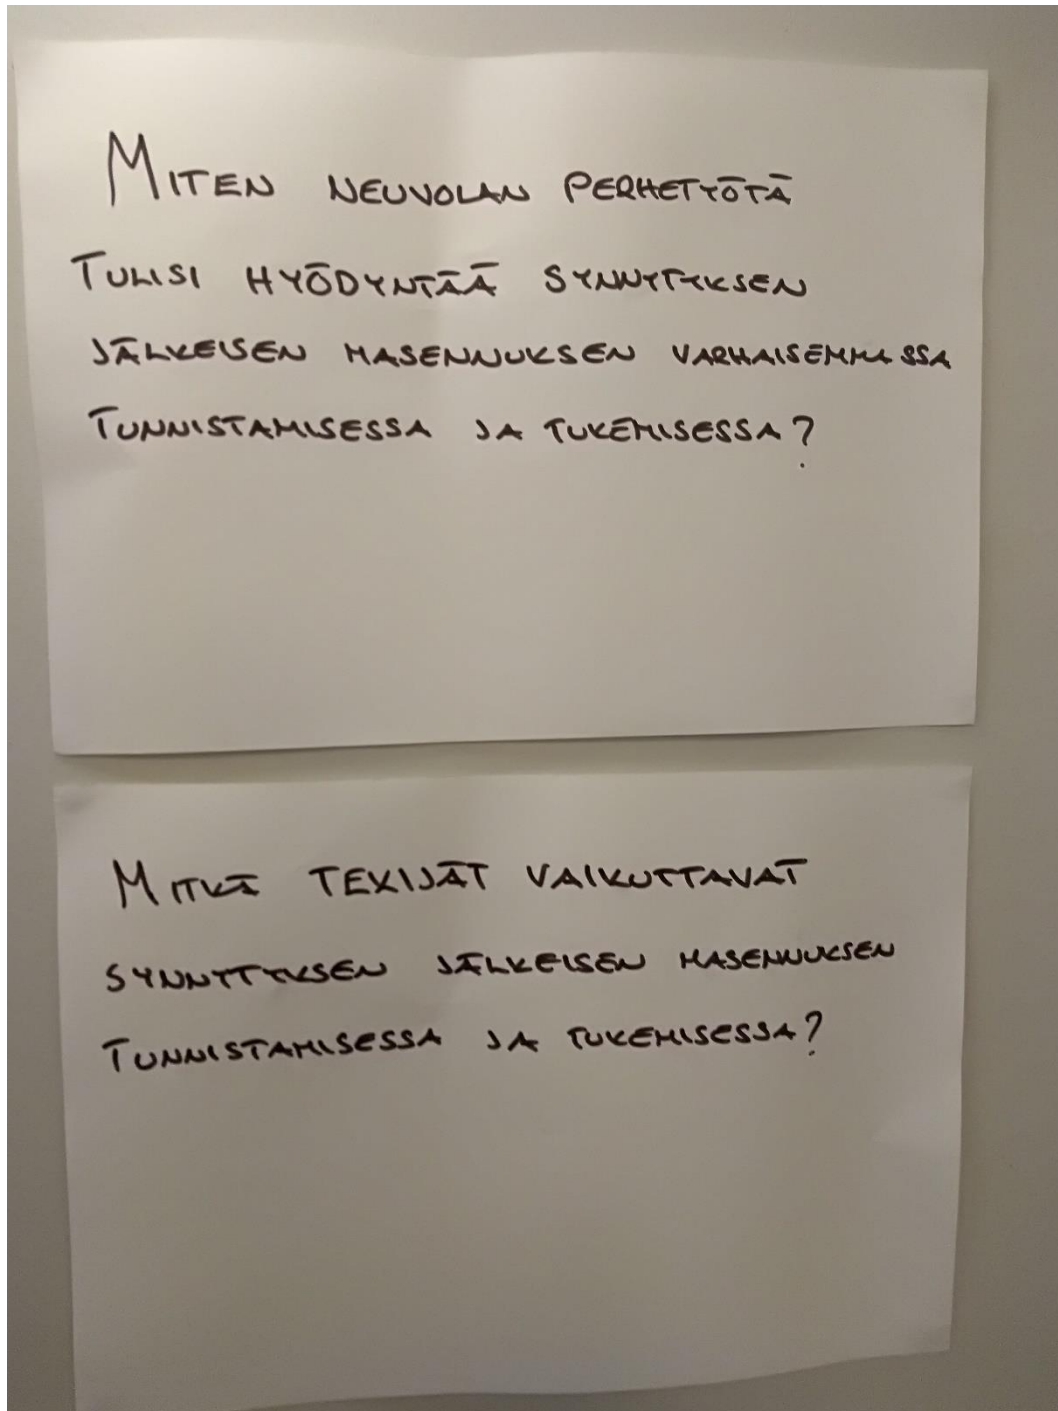 MITEN NEUVOLAN PERHETYÖTÄ
TULISI HYÖDYNTÄÄ SYNNYTYKSEN
JÄLKEISEN MASENNUKSEN VARHAISEMMASSA
TUNNISTAMISESSA JA TUKEMISESSA?
MITKÄ TEKIJÄT VAIKUTTAVAT
SYNNYTYKSEN JÄLKEISEN MASENNUKSEN
TUNNISTAMISESSA JA TUKEMISESSA?